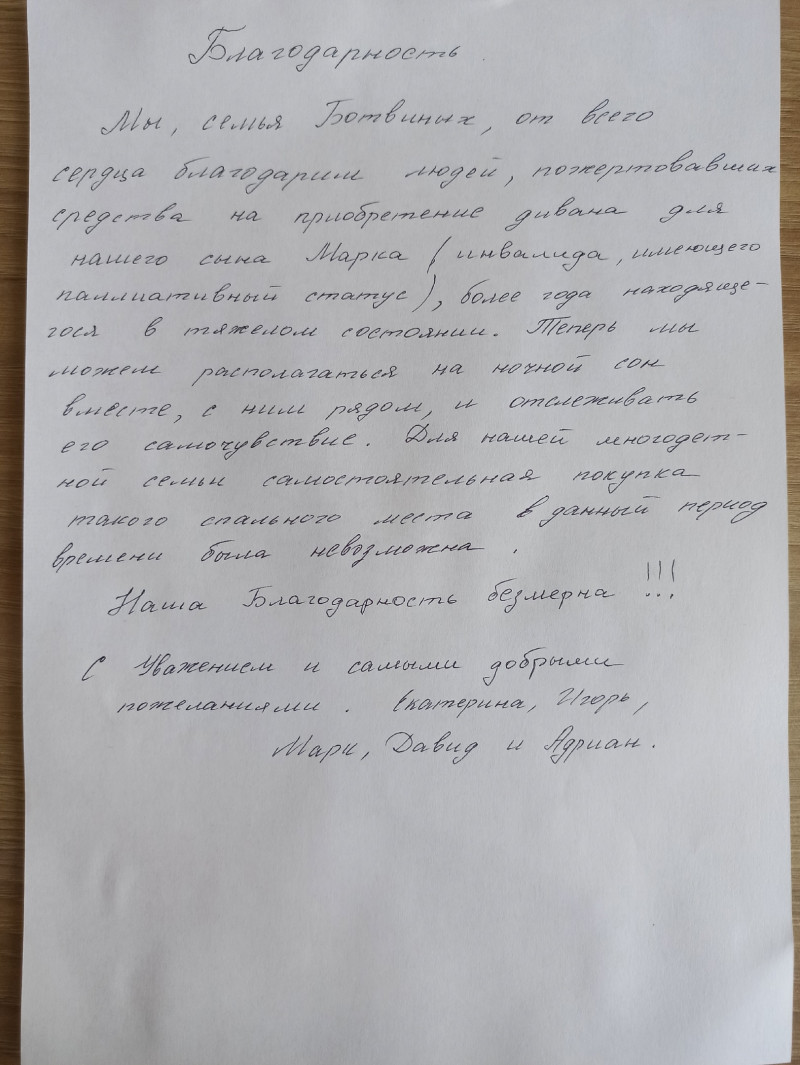 Благодарность.
Мы, семья Ботвиных, от всего
сердца благодарим людей, пожертвовавших
средства на приобретение дивана для
нашего сына Марка (инвалида, имеющего
паллиативный статус), более года находяще-
гося в тяжелом состоянии. Теперь мы
можем располагаться на ночной сон
вместе, с ним рядом, и отслеживать
его самочувствие. Для нашей многодет-
ной семьи самостоятельная покупка
такого спального места в данный период
времени была невозможна.
Наша Благодарность безмерна!!!
С Уважением и самыми добрыми
пожеланиями. Екатерина, Игорь,
Марк, Давид и Адриан.